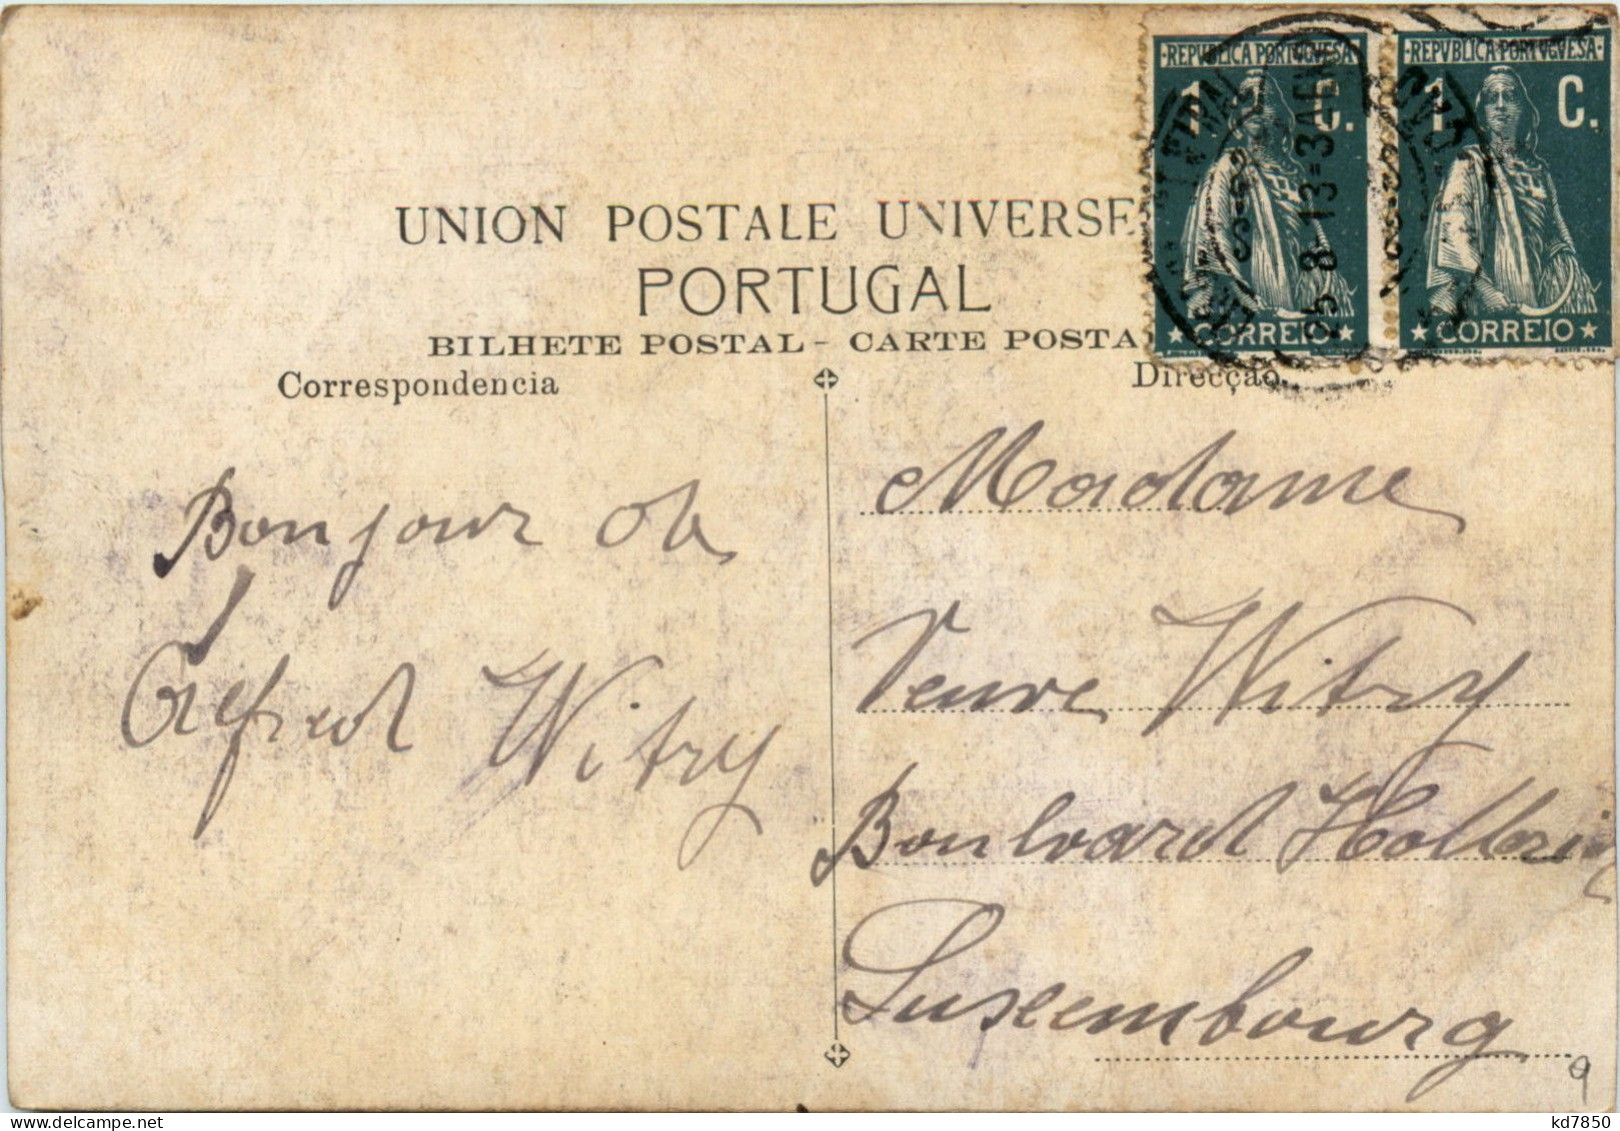 REPVBLICA PORTVGVESA
1 C.
CORREIO
REPVBLICA PORTVGVESA
1 C.
CORREIO
UNION POSTALE UNIVERSE
PORTUGAL
BILHETE POSTAL - CARTE POSTA
Correspondencia
Direcção
Bonjour de
Alfred Witry
Madame
Veuve Witry
Boulevard
Luxembourg
9
kd7850